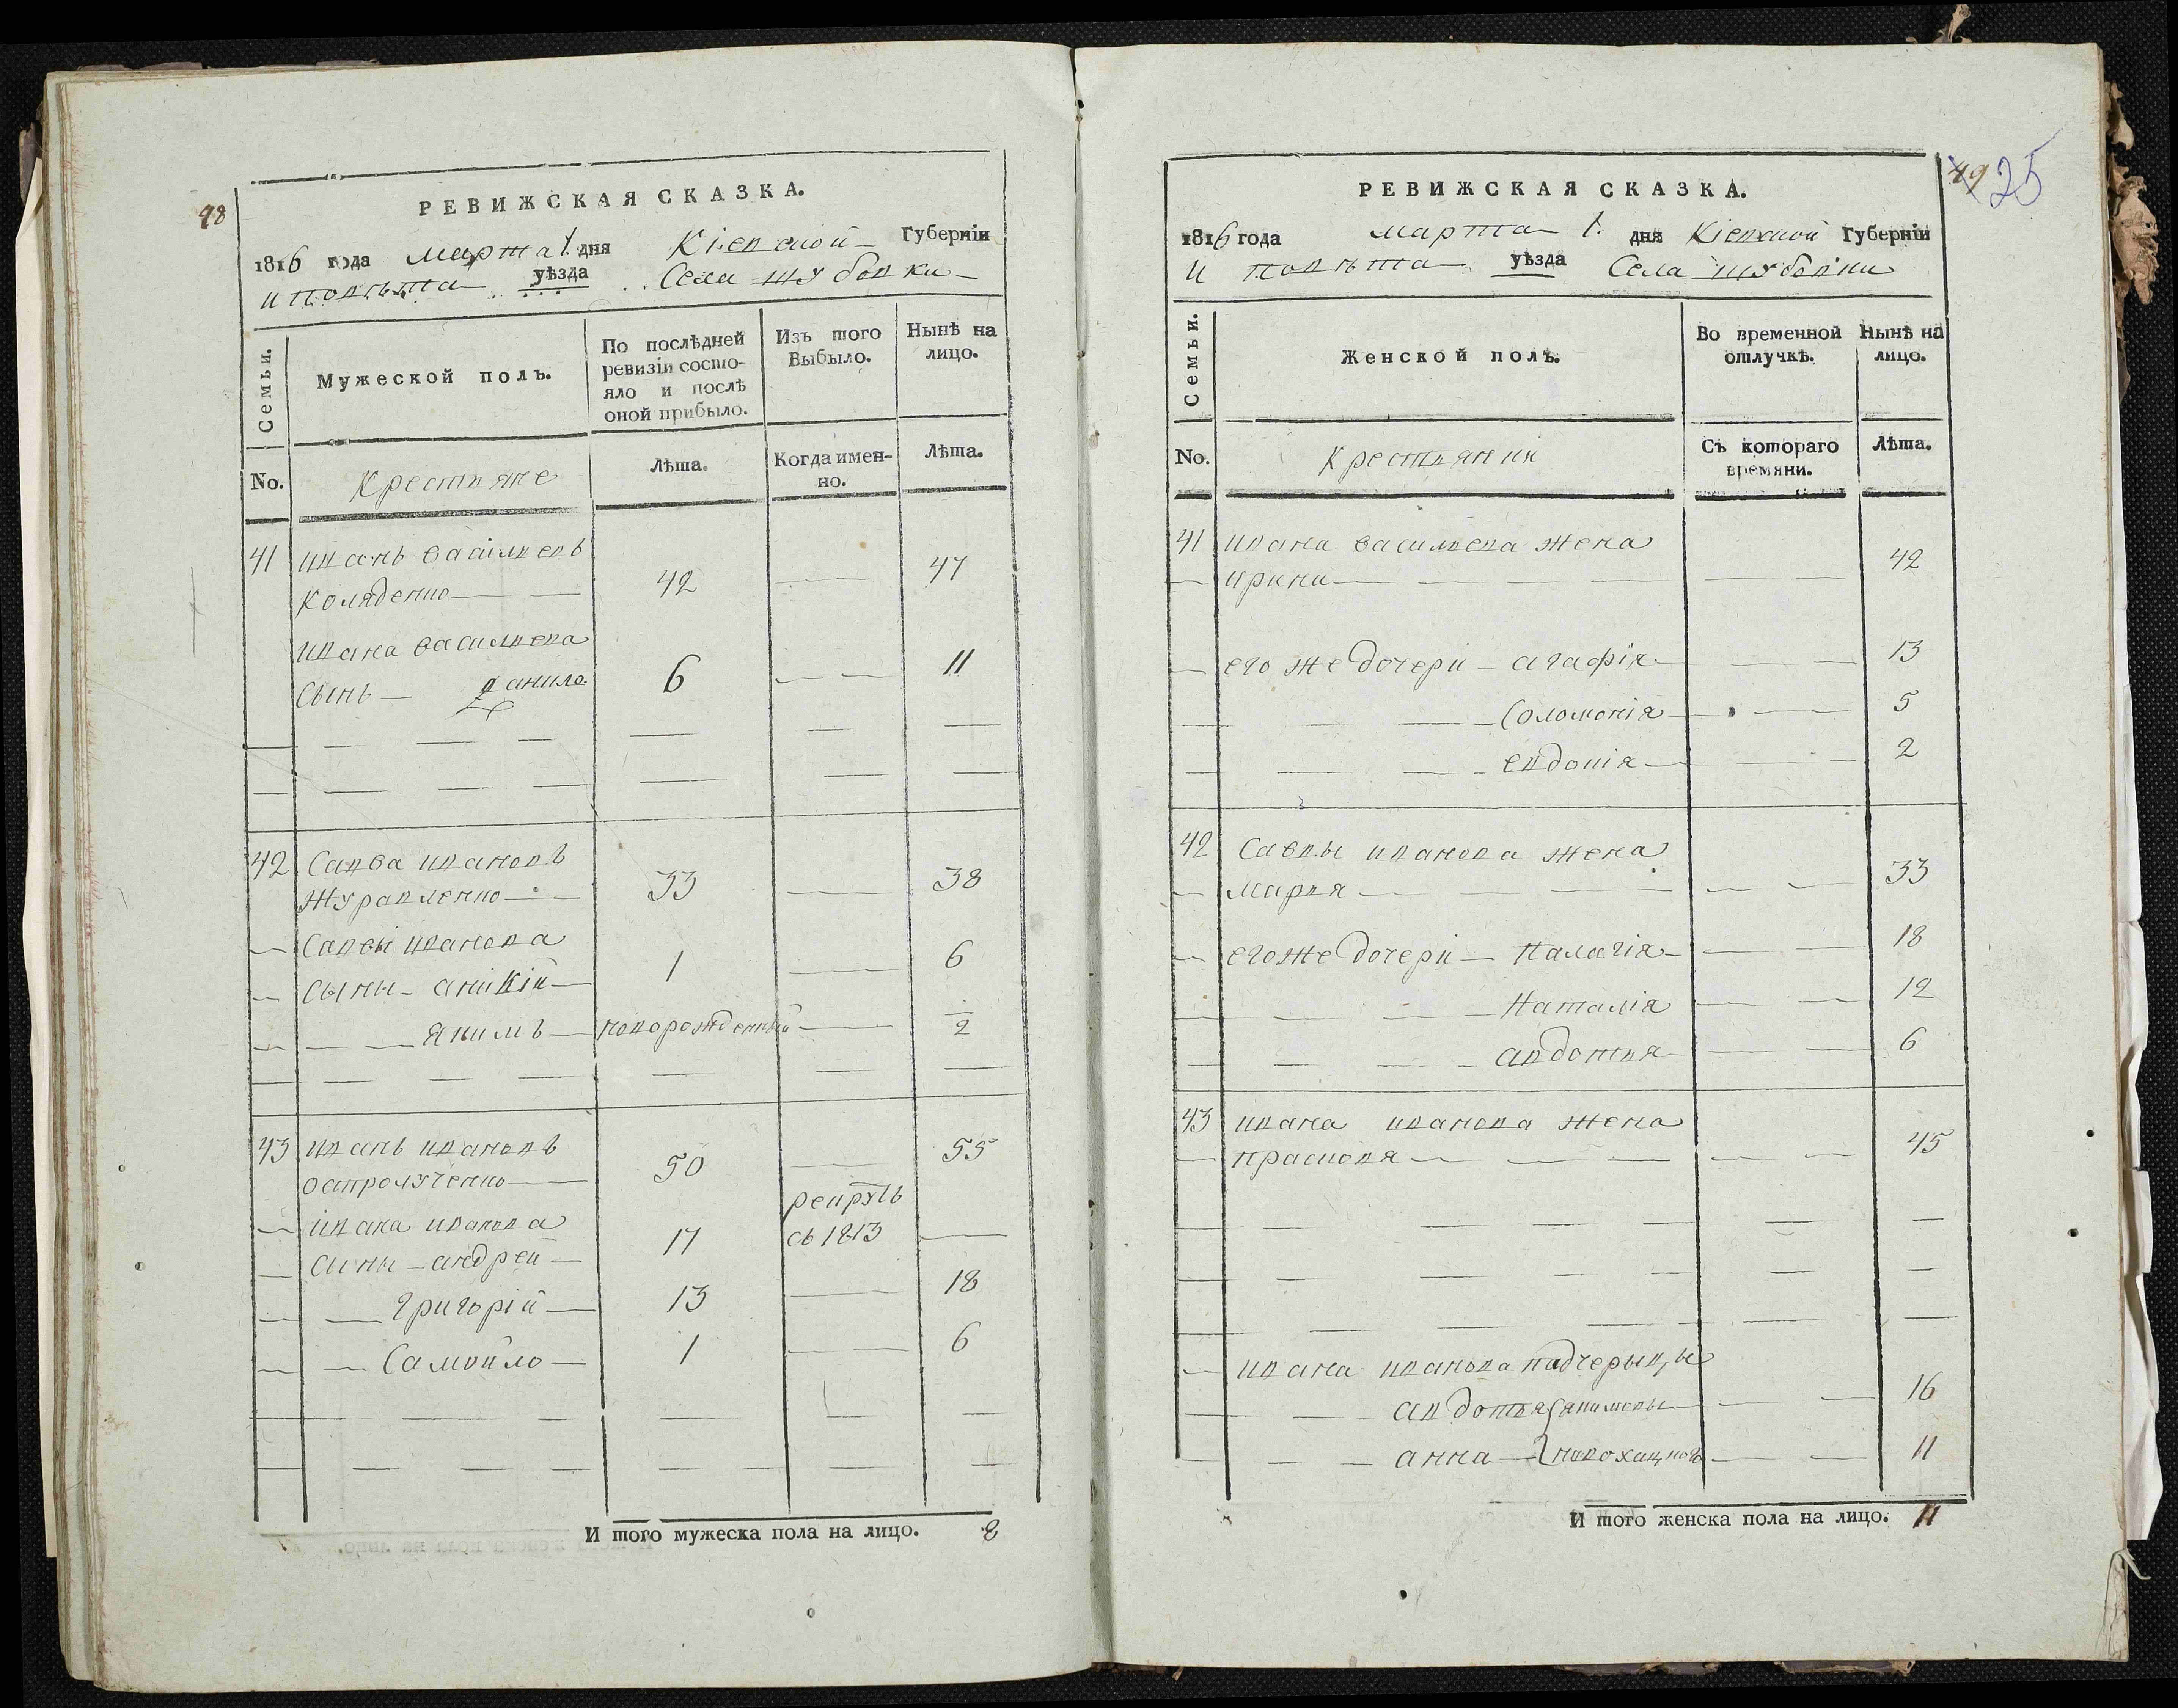 48
РЕВИЖСКАЯ СКАЗКА.
1816 года марта 1. дня Кіевской Губерніи
и повѣта уѣзда Села Шубовки
Семьи.
Мужеской полъ.
По послѣдней ревизіи состо-
яло и послѣ
оной прибыло.
Изъ того
Выбыло.
Нынѣ на
лицо.
No.
Крестьяне
Лѣта.
Когда имен-
но.
Лѣта.
41 иванъ василіевъ
Коляденко 42 47
ивана василіева
Сынъ Данило 6 11
42 Савва ивановъ
Журавленко 33 38
Саввы иванова
Сыны аникій 1 6
якимъ новорожденный 2
43 иванъ ивановъ
50 55
ивана иванова
рекрутъ
Сыны андрей 17 съ 1813
григорій 13 18
Самойло 1 6
И того мужеска пола на лицо. 8
49 25
РЕВИЖСКАЯ СКАЗКА.
1816 года марта 1. дня Кіевской Губерніи
и повѣта уѣзда Села Шубовки
Семьи.
Женской полъ.
Во временной
отлучкѣ.
Нынѣ на
лицо.
No.
Съ котораго
времяни.
Лѣта.
41 ивана василіева жена
ирина 42
его же дочери агафія 13
Соломонія 5
евдокія 2
42 Саввы иванова жена
Марья 33
его же дочери Палагія 18
Наталія 12
авдотья 6
43 ивана иванова жена
прасковя 45
ивана иванова падчерыцы
авдотья якимовы 16
анна 11
И того женска пола на лицо. 11